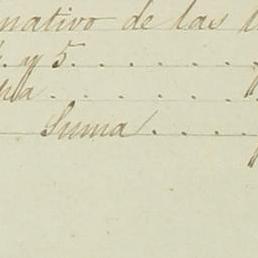 nativo de las
y 5. . . . . . .
. . . . . . .
Suma . . . .